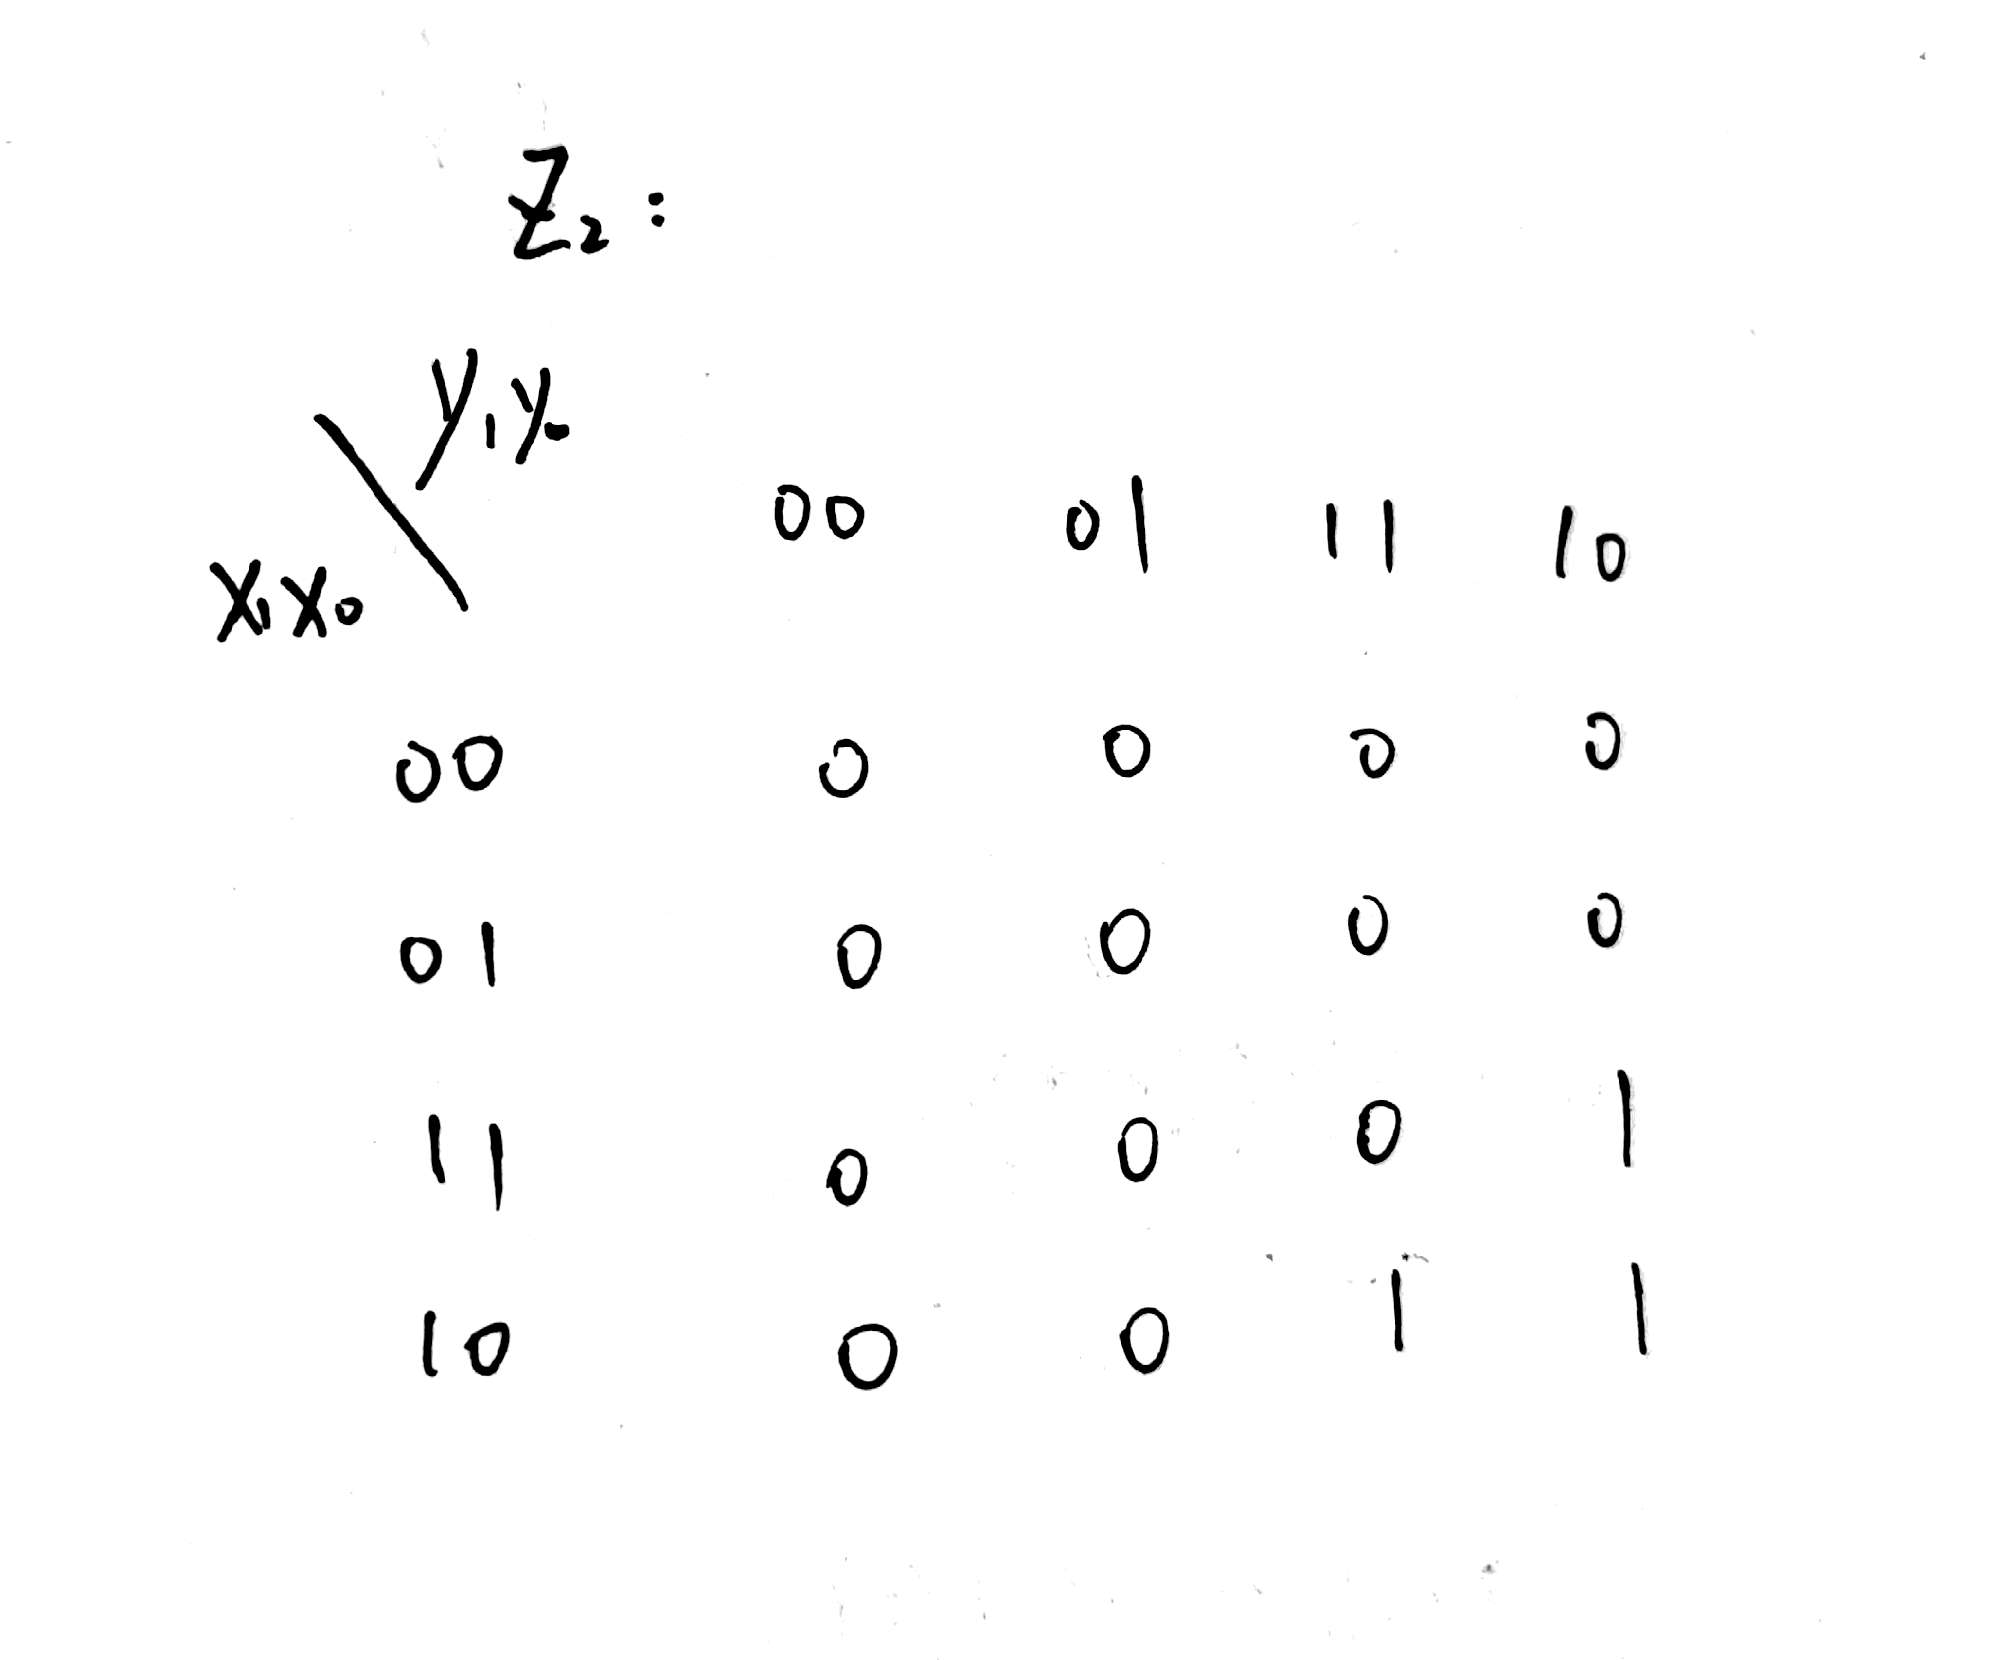 Z₂:
y₁y₀
00 01 11 10
x₁x₀
00 0 0 0 0
01 0 0 0 0
11 0 0 0 1
10 0 0 1 1